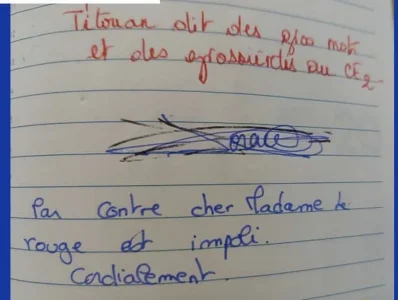 Titouan dit des gros mot
et des grossieretés au CE2
Par contre cher Madame le
rouge est impoli.
Cordialement.